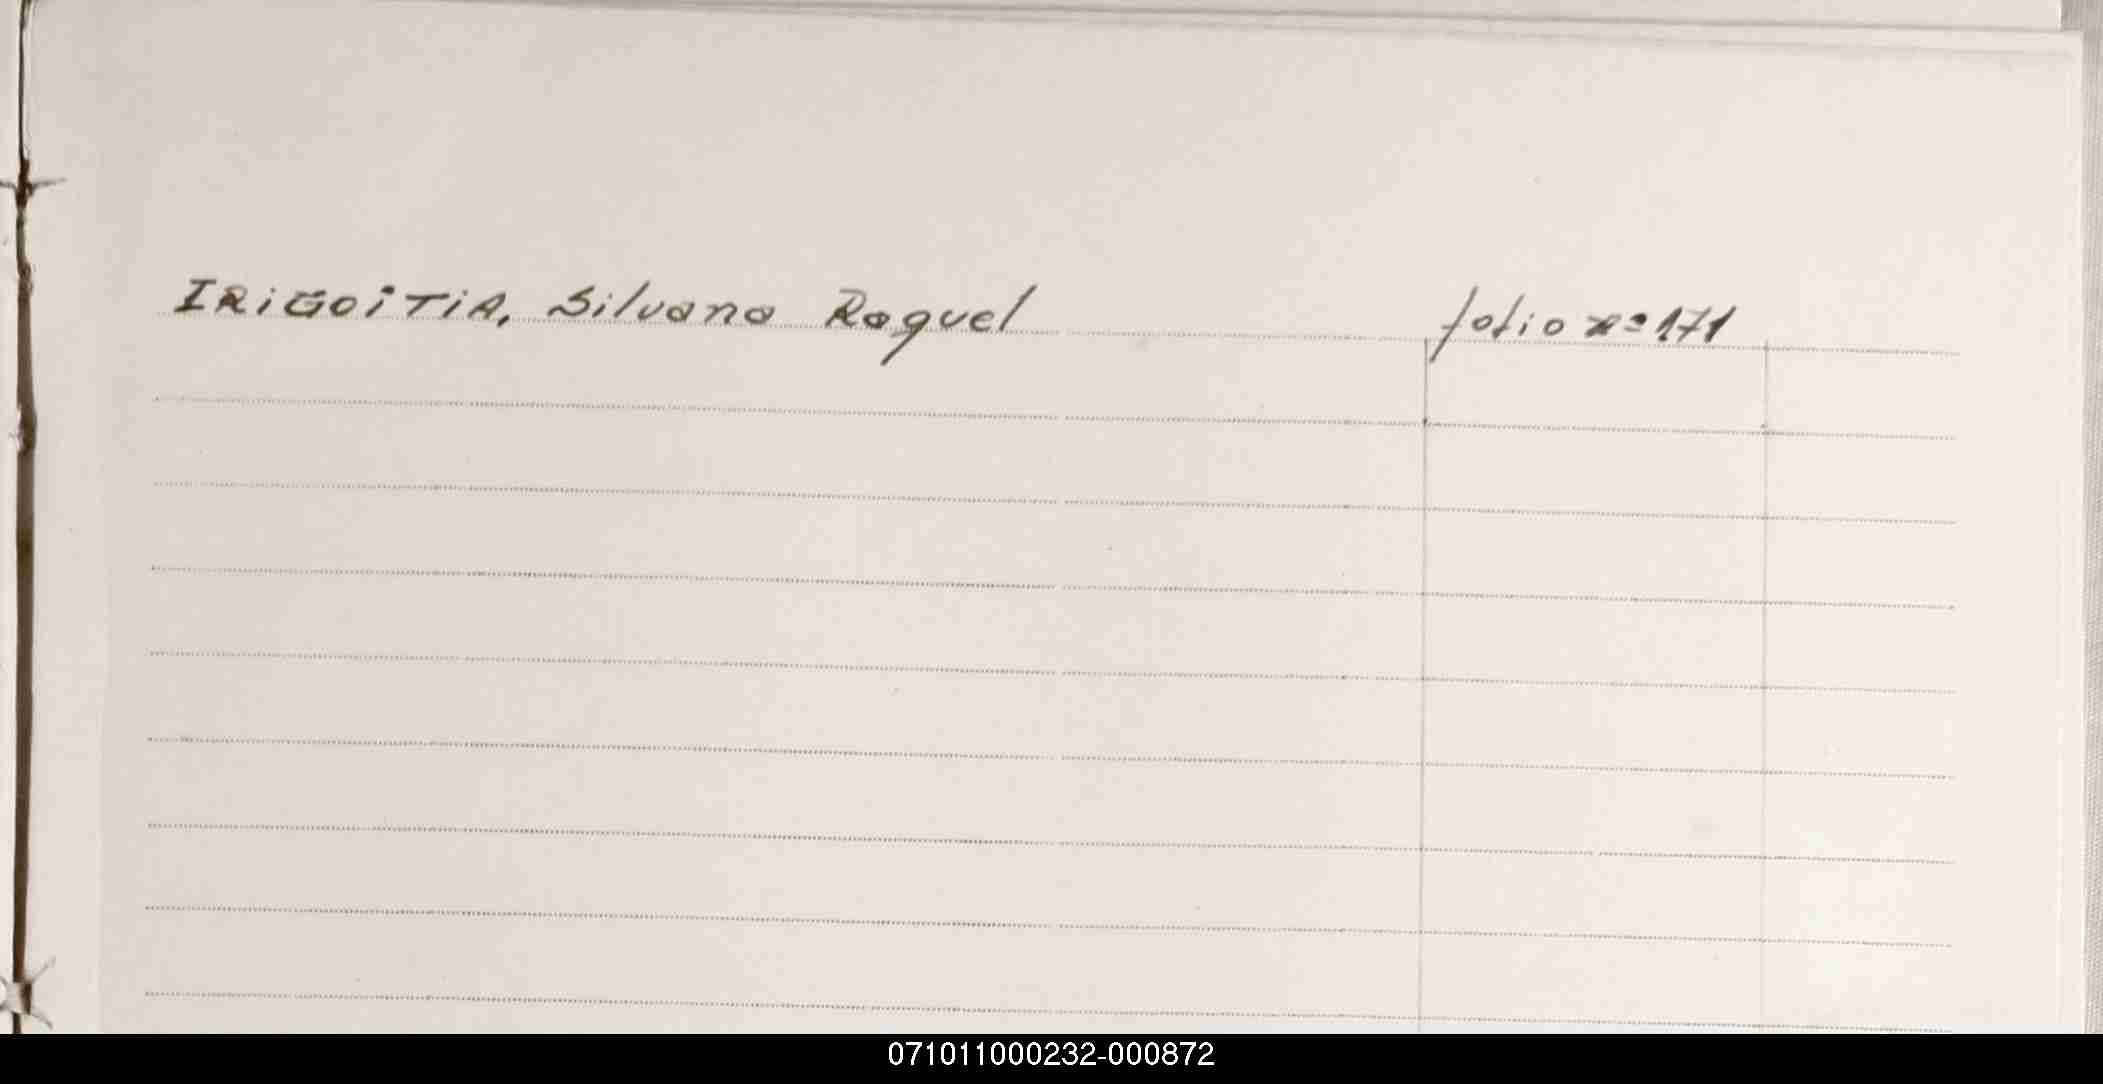 IRiGOiTiA, Silvana Raquel folio nº 171
071011000232-000872